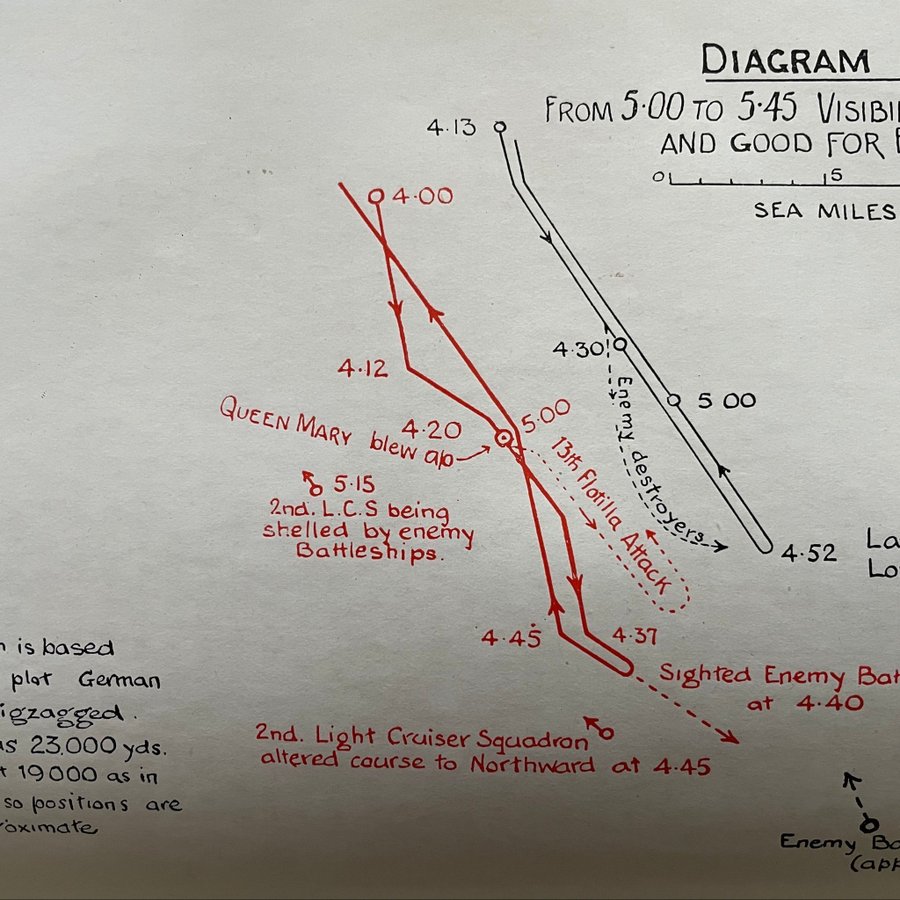 DIAGRAM
FROM 5·00 TO 5·45
AND GOOD FOR
0 5
SEA MILES
4·13
4·00
4·12
4·30
5 00
Enemy destroyers
QUEEN MARY blew up
4·20
5·00
13th Flotilla Attack
5·15
2nd. L.C.S being
shelled by enemy
Battleships.
4·52
4·45
4·37
Sighted Enemy
at 4·40
2nd. Light Cruiser Squadron
altered course to Northward at 4·45
is based
plot German
zigzagged.
23,000 yds.
19000 as in
so positions are
Enemy